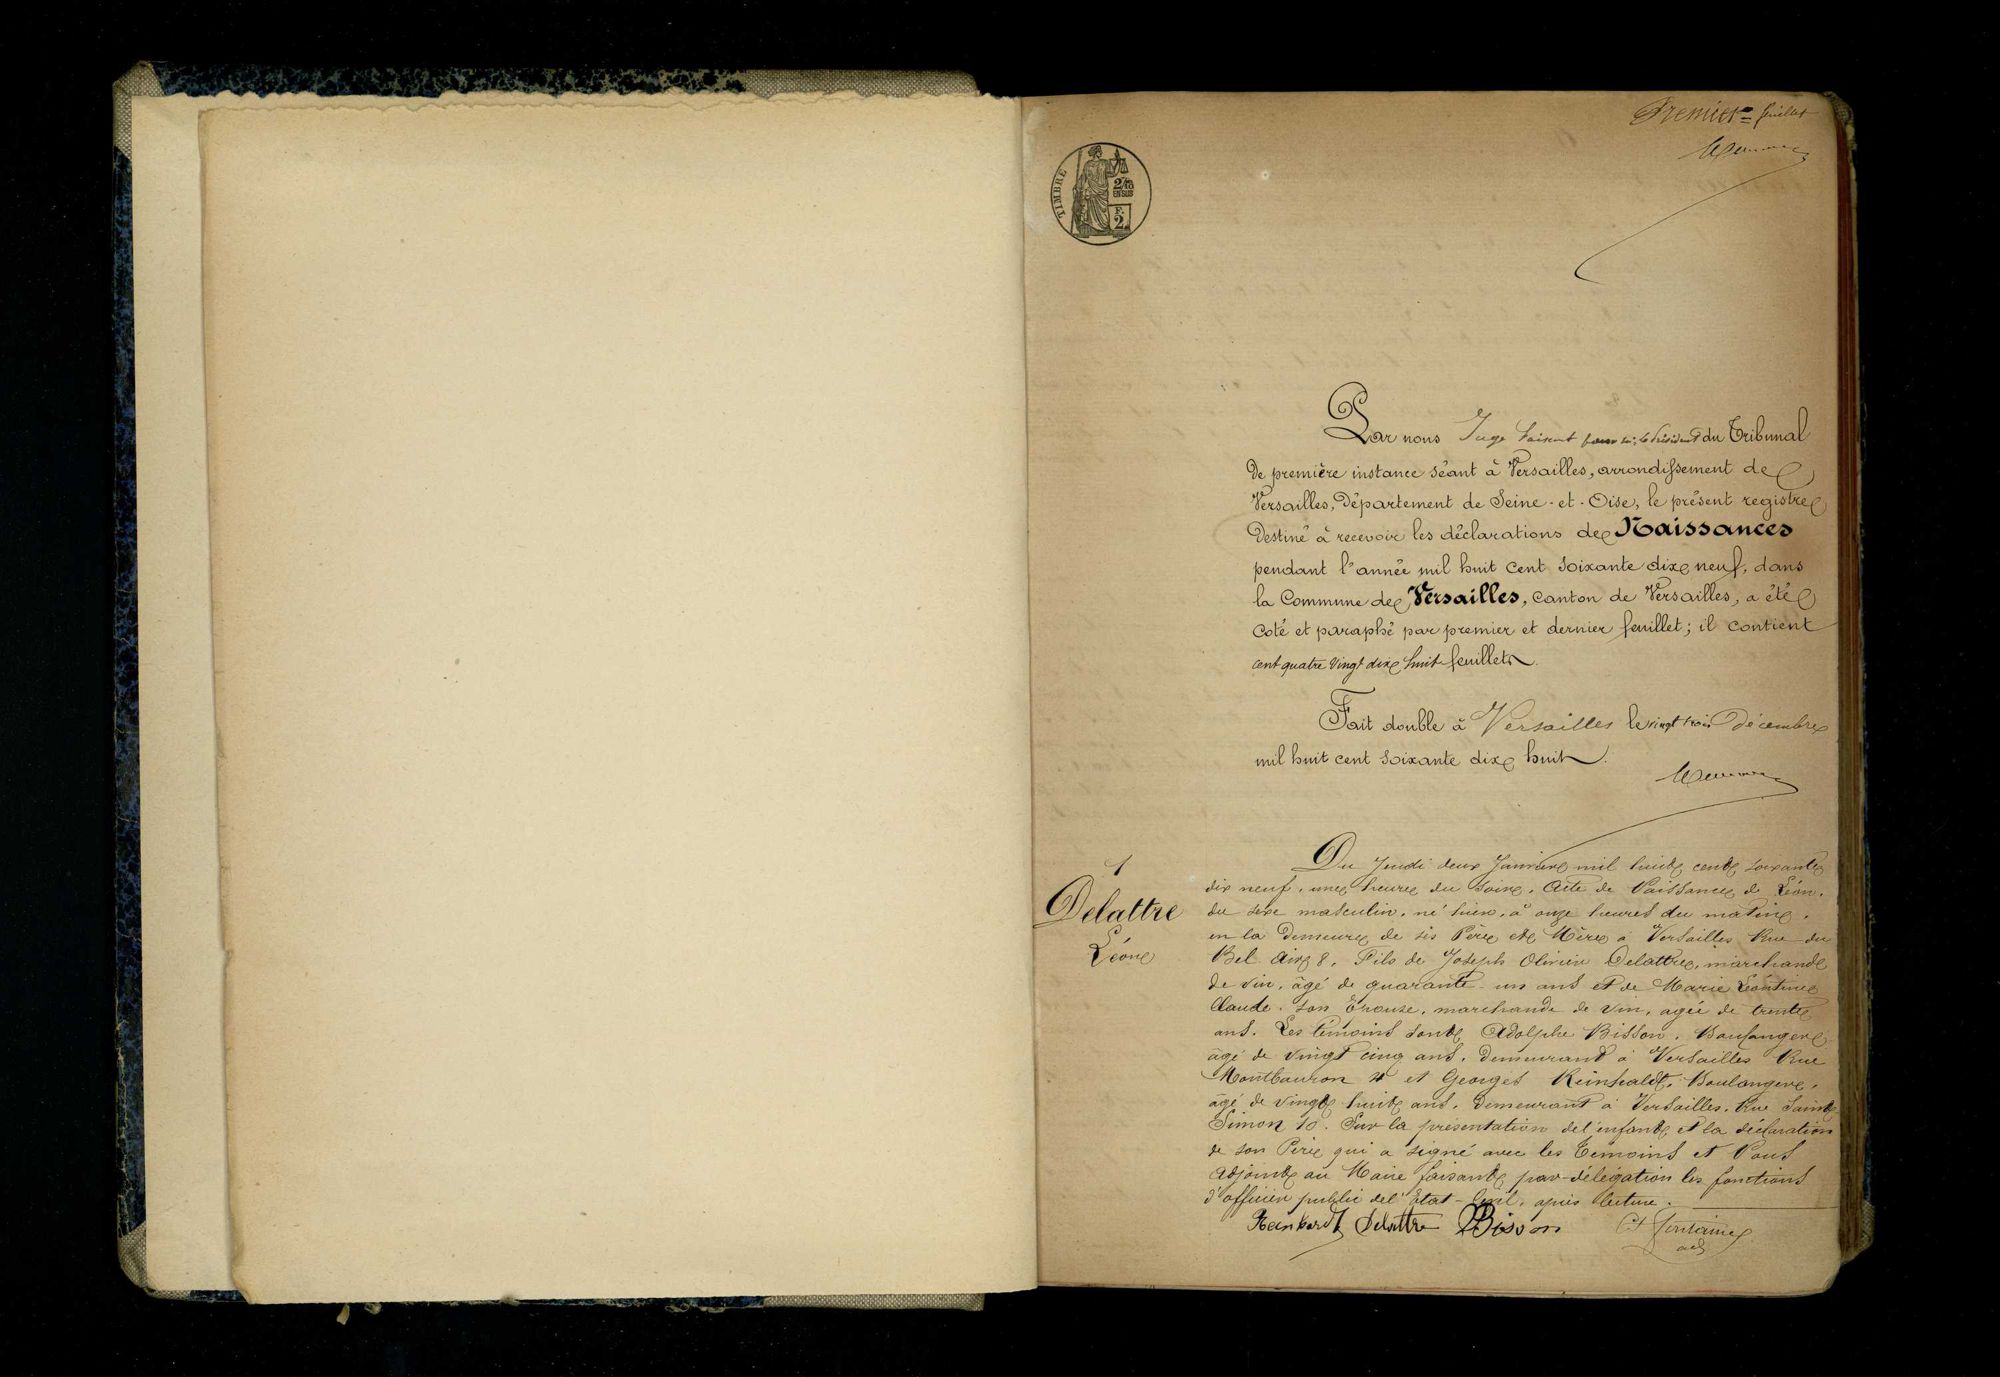 Premier feuillet
TIMBRE
2/10
EN SUS
F.
2.
Par nous Juge faisant pour le Président du Tribunal
De première instance séant à Versailles, arrondissement de
Versailles, Département de Seine-et-Oise, le présent registre
Destiné à recevoir les déclarations de Naissances
pendant l'année mil huit cent soixante dix neuf, dans
la Commune de Versailles, Canton de Versailles, a été
Coté et paraphé par premier et dernier feuillet; il contient
cent quatre vingt dix huit feuillets.
Fait double à Versailles le vingt trois Décembre
mil huit cent soixante dix huit.
1
Delattre
Léon
Du Jeudi deux Janvier mil huit cent soixante
dix neuf, une heure du soir, Acte de Naissance de Léon,
du sexe masculin, né hier, à onze heures du matin,
en la Demeure de ses Père et Mère à Versailles Rue du
Bel Air 8, Fils de Joseph Olivier Delattre, marchand
de vin, âgé de quarante-un ans et de Marie Léontine
Claude, son Epouse, marchande de vin, agée de trente
ans. Les témoins sont Adolphe Bisson, Boulanger
âgé de vingt cinq ans, Demeurant à Versailles Rue
Montbauron 4 et Georges Reinhaldt, Boulanger,
âgé de vingt huit ans, Demeurant à Versailles, Rue Saint
Simon 10. Sur la présentation de l'enfant et la déclaration
de son Père qui a signé avec les Témoins et Nous
Adjoint au Maire faisant par délégation les fonctions
d'officier public de l'Etat-Civil, après lecture.
Reinhardt Delattre Bisson